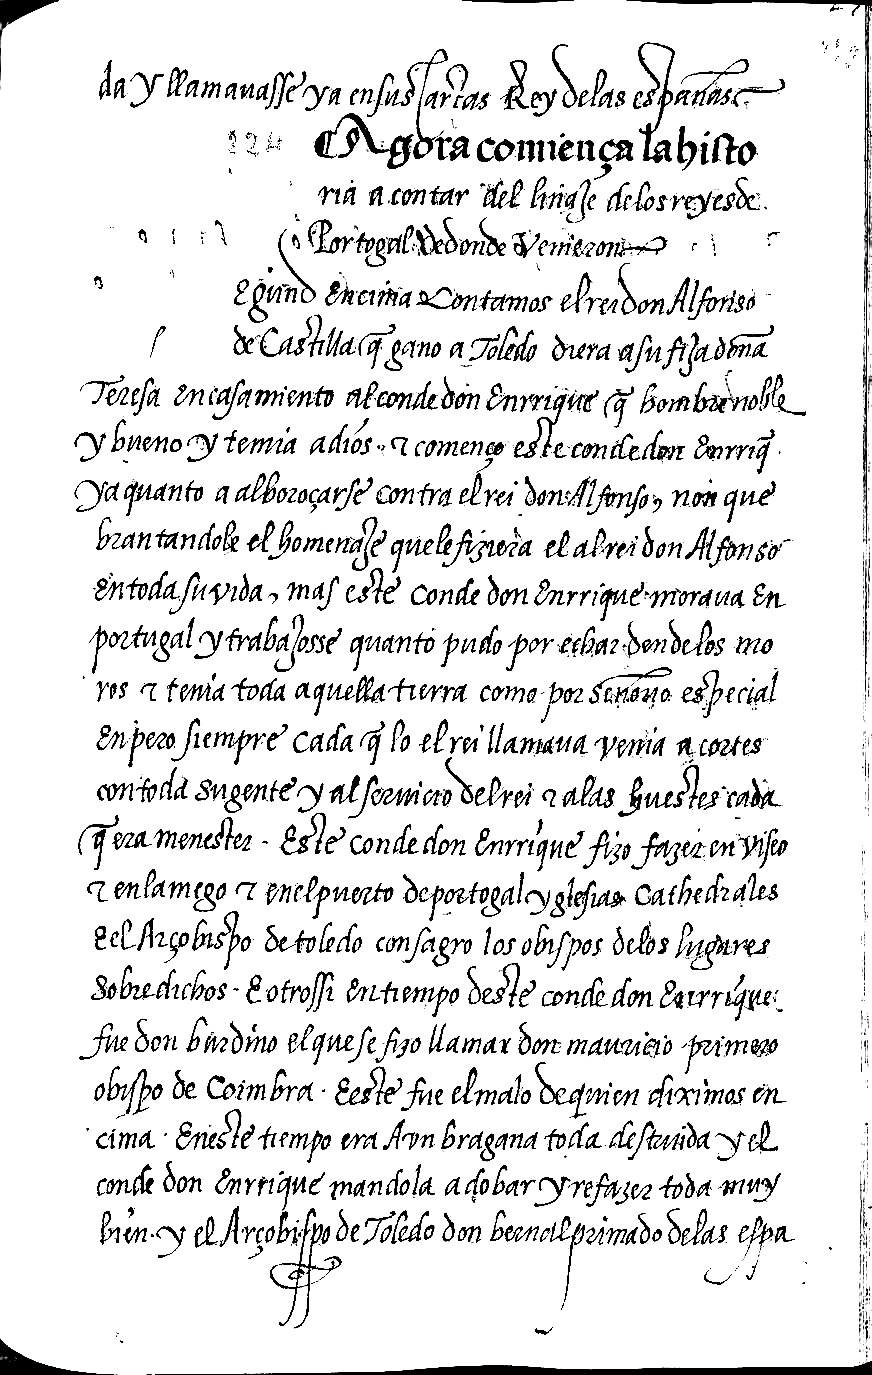 da y llamauasse ya en sus cartas Rey de las españas
Agora comiença la histo
ria a contar del linaje de los reyes de
Portogal E de donde Venieron
Egund Encima Contamos el rei don Alfonso
de Castilla q̃ gano a Toledo diera a su fija doña
Teresa en casamiento al conde don Enrrique q̃ hombre noble
y bueno y temia a dios · τ començo este conde don Enrriq̃
ya quanto a alboroçarse contra el rei don Alfonso, non que
brantandole el homenaje que le fiziera el al rei don Alfonso
En toda su vida, mas este Conde don Enrrique moraua En
portugal y trabajosse quanto pudo por echar dende los mo
ros τ tenia toda aquella tierra como por señorio especial
Enpero siempre cada q̃ lo el rei llamaua venia a cortes
con toda su gente y al seruicio del rei τ a las huestes cada
q̃ era menester · Este conde don Enrrique fizo fazer en Viseo
τ en lamego τ en el puerto de portogal yglesias Cathedrales
E el Arçobispo de toledo consagro los obispos de los lugares
sobredichos · E otrossi En tiempo deste conde don Enrrique
fue don burdino el que se fizo llamar don mauricio primero
obispo de Coimbra · E este fue el malo de quien diximos en
cima · En este tiempo era Avn bragana toda destruida y el
conde don Enrrique mandola adobar y refazer toda muy
bien · y el Arçobispo de Toledo don bernal primado de las espa